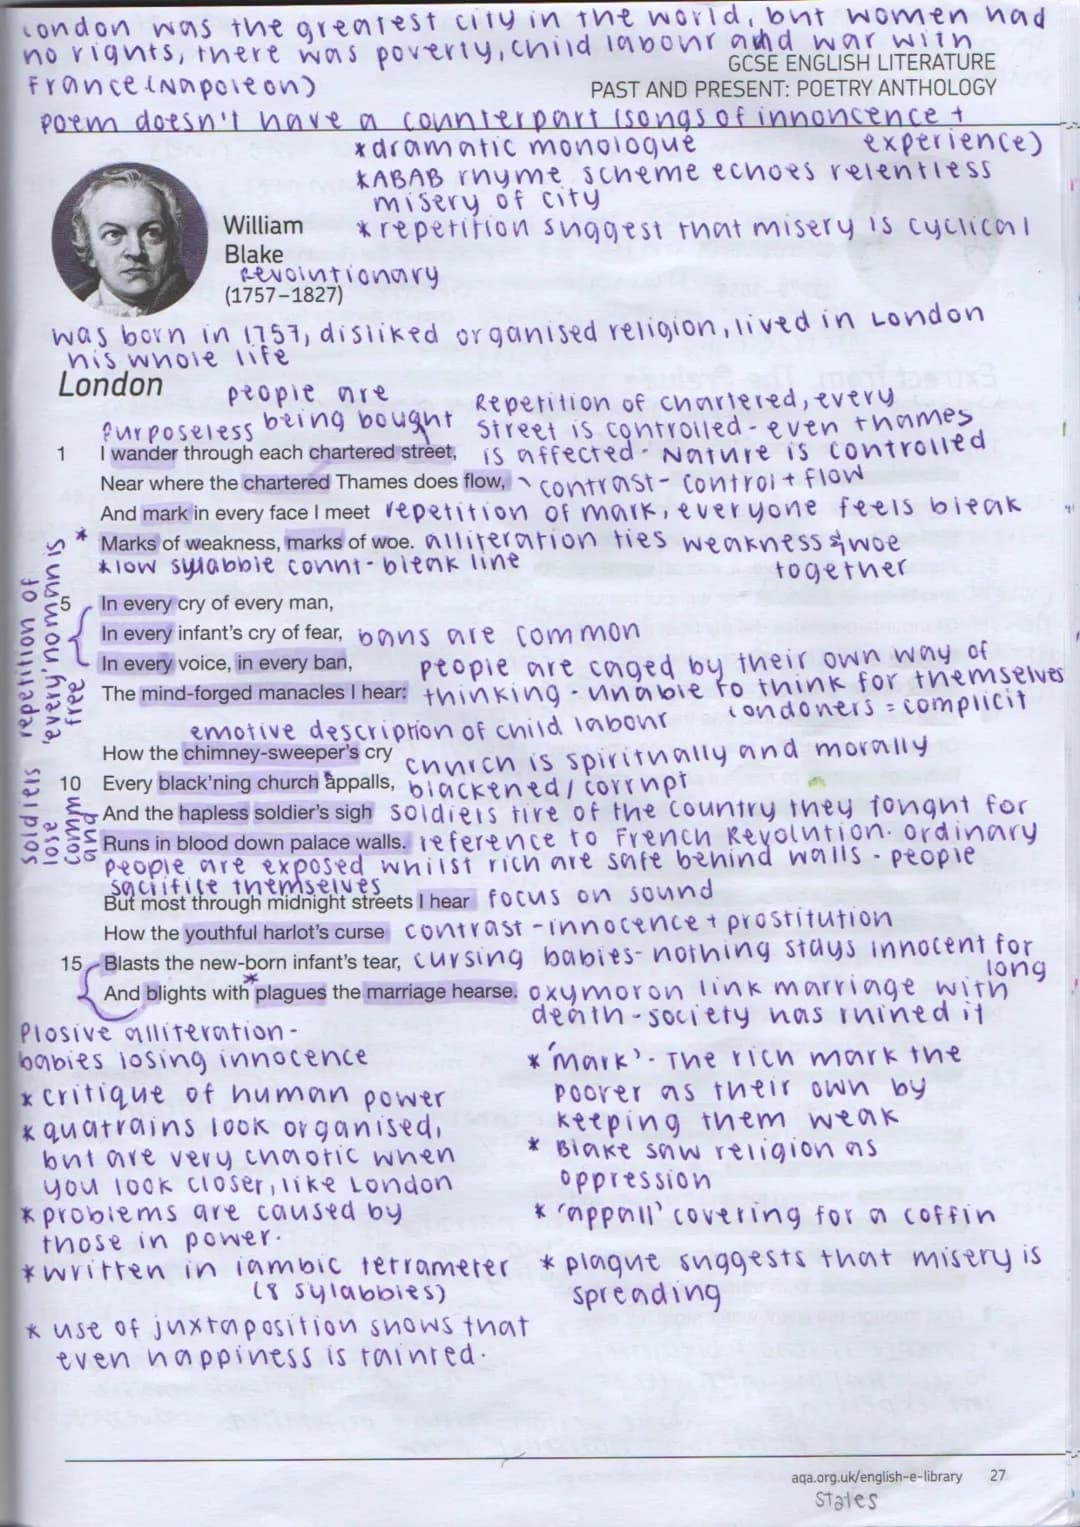 London was the greatest city in the world, but women had
no rights, there was poverty, child labour and war with
France (Napoleon)
GCSE ENGLISH LITERATURE
PAST AND PRESENT: POETRY ANTHOLOGY
poem doesn't have a counterpart (songs of innoncence +
experience)
*dramatic monologue
*ABAB rhyme scheme echoes relentless
misery of city
*repetition suggest that misery is cyclical
William
Blake
Revolutionary
(1757–1827)
was born in 1757, disliked organised religion, lived in London
his whole life
London
people are
being bought
Purposeless
Repetition of chartered, every
street is controlled - even thames
is affected - Nature is controlled
1 I wander through each chartered street,
Near where the chartered Thames does flow,
contrast - control + flow
And mark in every face I meet
repetition of mark, everyone feels bleak
* Marks of weakness, marks of woe.
alliteration ties weakness & woe
together
*low syllable count - bleak line
repetition of
'every' noman is
free
5 In every cry of every man,
In every infant's cry of fear,
bans are common
In every voice, in every ban,
people are caged by their own way of
The mind-forged manacles I hear:
thinking - unable to think for themselves
Londoners = complicit
emotive description of child labour
How the chimney-sweeper's cry
church is spiritually and morally
10 Every black'ning church appalls,
blackened / corrupt
soldiers
lose
comm
and
And the hapless soldier's sigh
soldiers tire of the country they fought for
Runs in blood down palace walls.
reference to French Revolution. ordinary
people are exposed whilst rich are safe behind walls - people
sacrifice themselves
But most through midnight streets I hear
focus on sound
How the youthful harlot's curse
contrast - innocence + prostitution
15 Blasts the new-born infant's tear,
cursing babies - nothing stays innocent for
long
And blights with plagues the marriage hearse.
oxymoron link marriage with
death - society has ruined it
Plosive alliteration -
babies losing innocence
* critique of human power
* quatrains look organised,
but are very chaotic when
you look closer, like London
* problems are caused by
those in power.
* written in iambic tetrameter
(8 sylabbles)
* use of juxtaposition shows that
even happiness is tainted.
* 'mark' - The rich mark the
poorer as their own by
keeping them weak
* Blake saw religion as
oppression
* 'appall' covering for a coffin
* plague suggests that misery is
spreading
aqa.org.uk/english-e-library 27
states